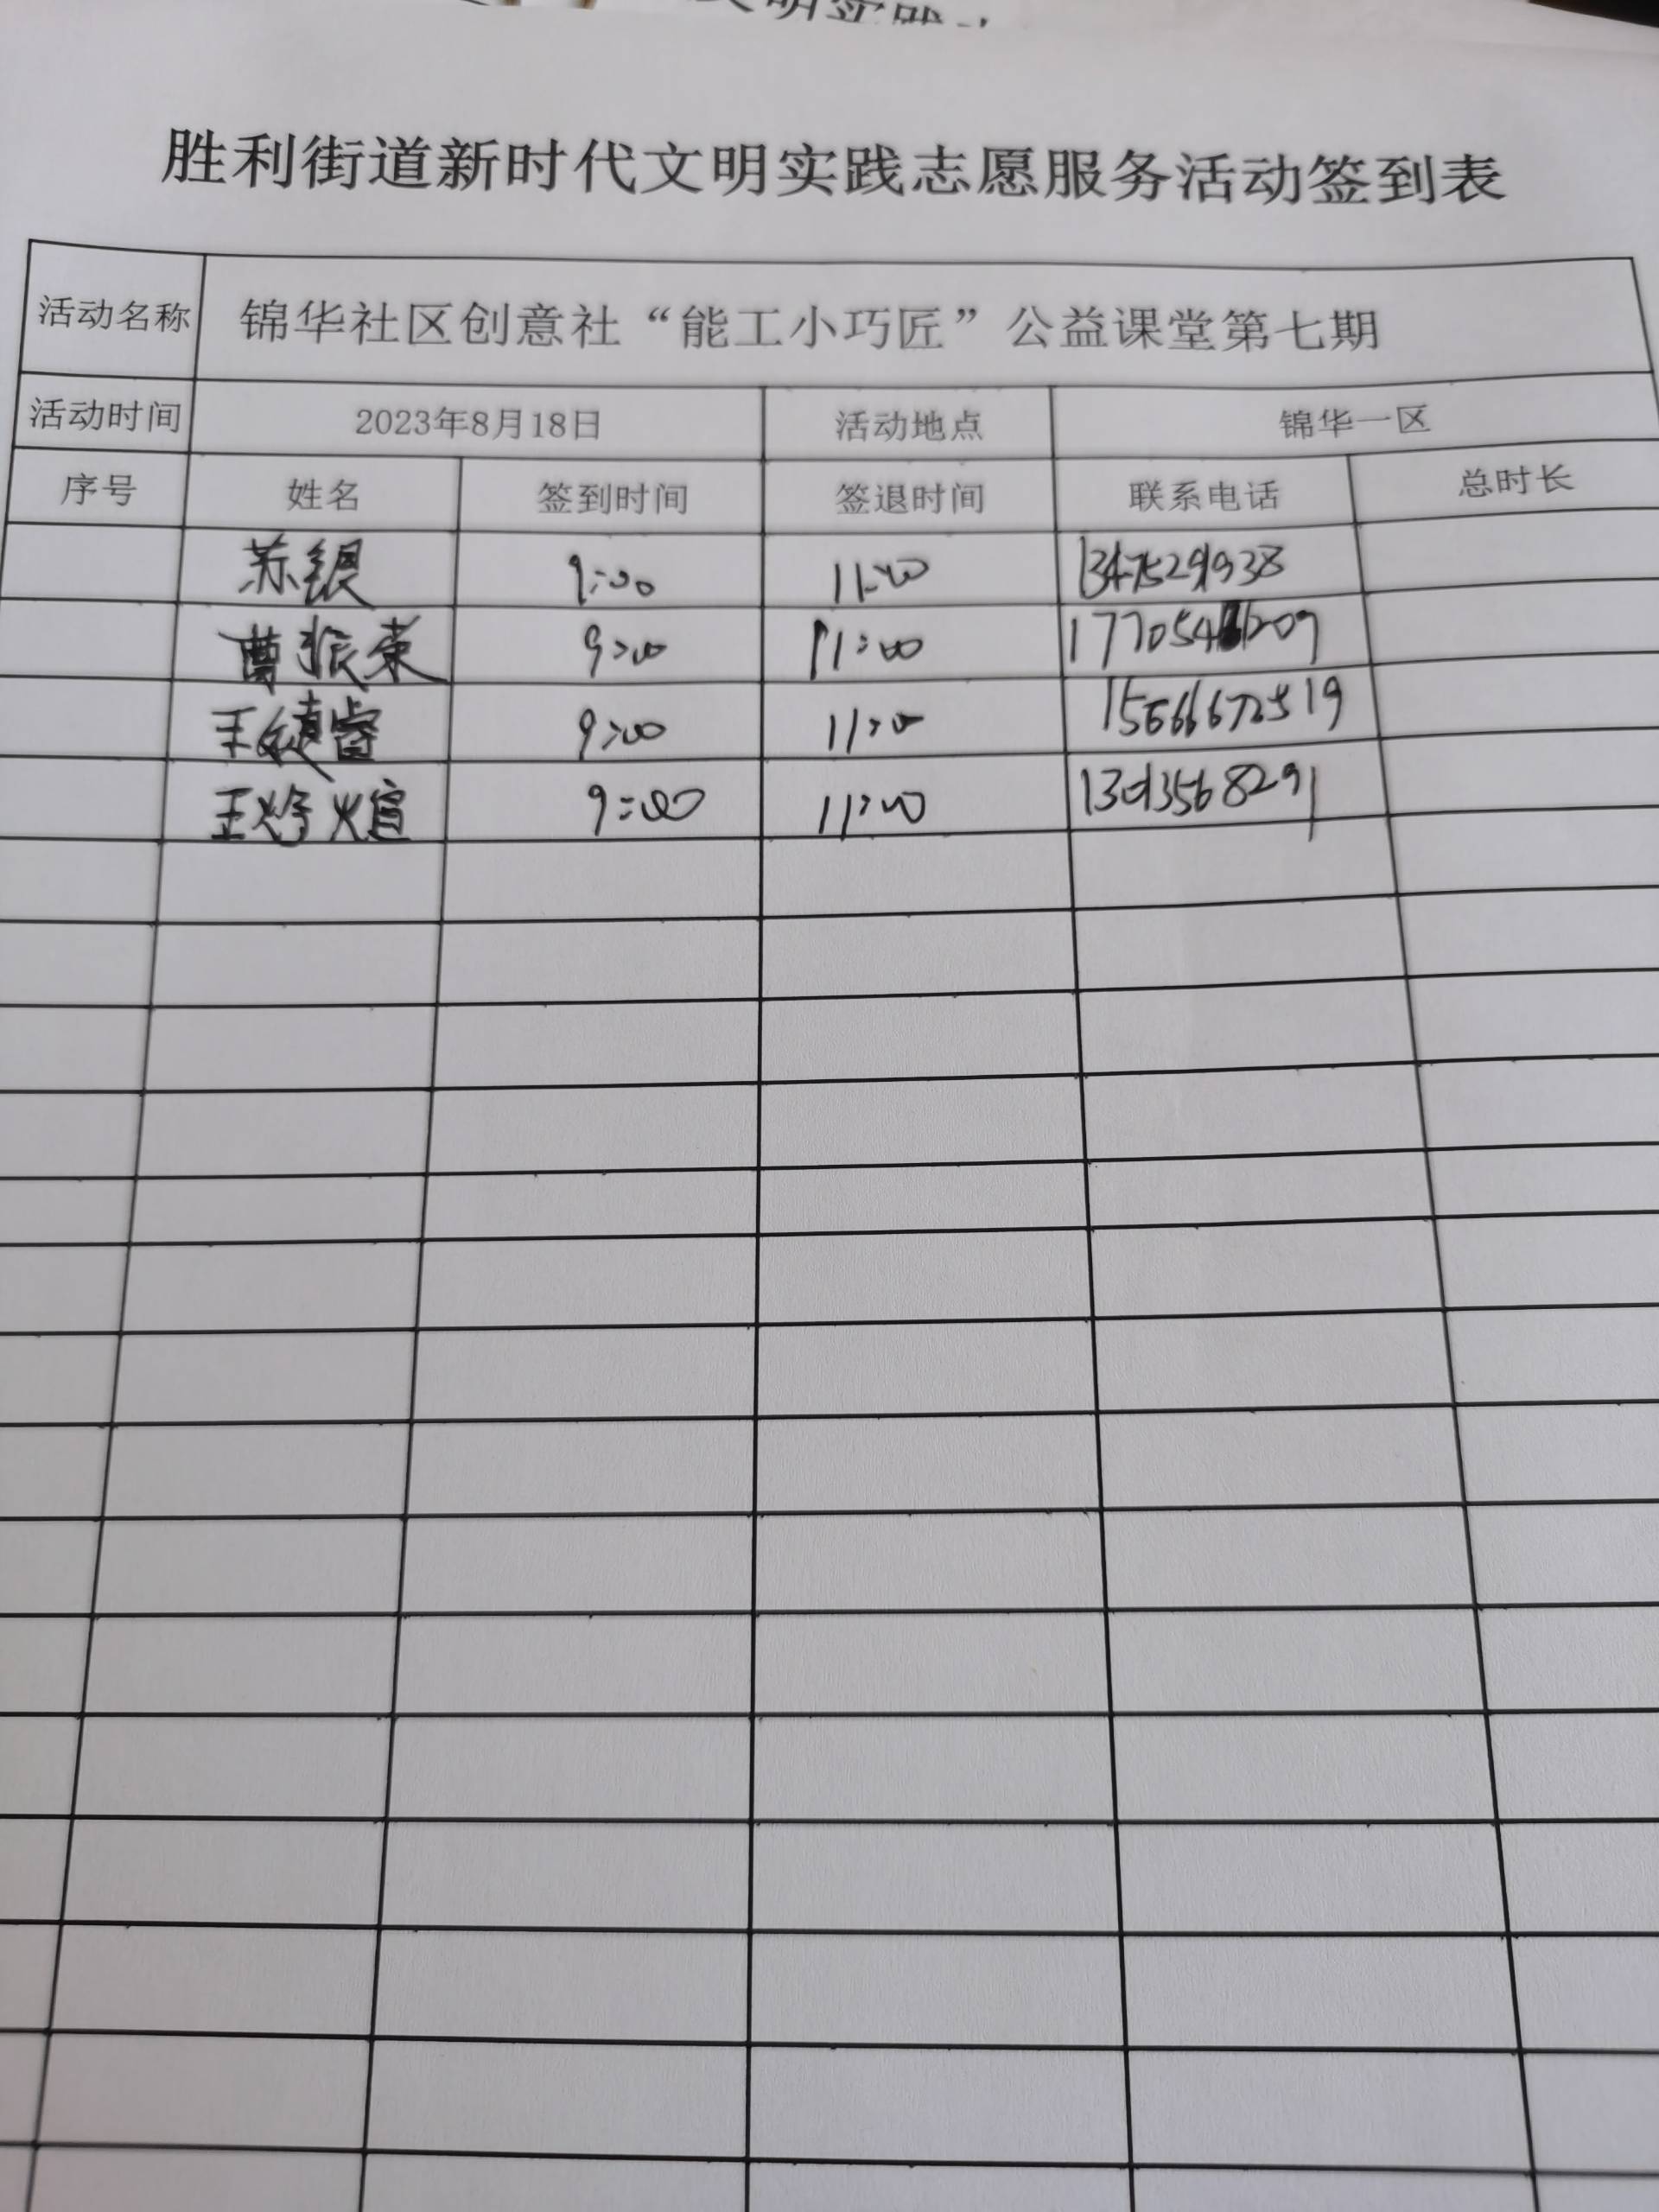 胜利街道新时代文明实践志愿服务活动签到表
活动名称 锦华社区创意社“能工小巧匠”公益课堂第七期
活动时间 2023年8月18日 活动地点 锦华一区
序号 姓名 签到时间 签退时间 联系电话 总时长
苏银 9:00 11:00
曹振荣 9:00 11:00
王 睿 9:00 11:00 15666672519
王烨煊 9:00 11:00